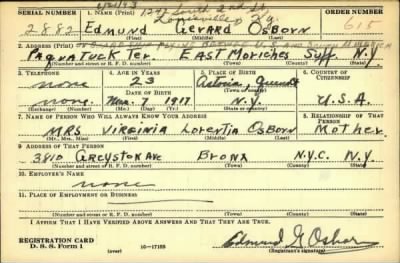 SERIAL NUMBER 1. NAME (Print) 1242 South 2nd St. ORDER NUMBER
Louisville Ky.
2882 EDMUND GERARD OSBORN 615
(First) (Middle) (Last)
2. ADDRESS (Print)
PAQUATUCK TER. EAST MORICHES SUFF. N.Y.
(Number and street or R. F. D. number) (Town) (County) (State)
3. TELEPHONE 4. AGE IN YEARS 5. PLACE OF BIRTH 6. COUNTRY OF CITIZENSHIP
none 23 Astoria, Queens
DATE OF BIRTH (Town or county)
none Mar. 7 1917 N.Y. U.S.A.
(Exchange) (Number) (Mo.) (Day) (Yr.) (State or country)
7. NAME OF PERSON WHO WILL ALWAYS KNOW YOUR ADDRESS 8. RELATIONSHIP OF THAT PERSON
MRS VIRGINIA LORENTIA OSBORN Mother
(Mr., Mrs., Miss) (First) (Middle) (Last)
9. ADDRESS OF THAT PERSON
3810 GREYSTON AVE BRONX N.Y.C. N.Y.
(Number and street or R. F. D. number) (Town) (County) (State)
10. EMPLOYER'S NAME
none
11. PLACE OF EMPLOYMENT OR BUSINESS
(Number and street or R. F. D. number) (Town) (County) (State)
I AFFIRM THAT I HAVE VERIFIED ABOVE ANSWERS AND THAT THEY ARE TRUE.
REGISTRATION CARD
D. S. S. Form 1 (over) 16—17105 Edmund G Osborn
(Registrant's signature)